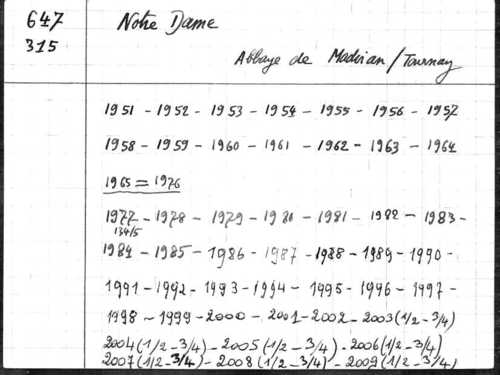 647 Notre Dame
315
Abbaye de Madiran / Tournay
1951 - 1952 - 1953 - 1954 - 1955 - 1956 - 1957
1958 - 1959 - 1960 - 1961 - 1962 - 1963 - 1964
1965 = 1976
1977 - 1978 - 1979 - 1980 - 1981 - 1982 - 1983 -
134/5
1984 - 1985 - 1986 - 1987 - 1988 - 1989 - 1990 -
1991 - 1992 - 1993 - 1994 - 1995 - 1996 - 1997 -
1998 - 1999 - 2000 - 2001 - 2002 - 2003 (1/2 - 3/4)
2004 (1/2 - 3/4) - 2005 (1/2 - 3/4) - 2006 (1/2 - 3/4)
2007 (1/2 - 3/4) - 2008 (1/2 - 3/4) - 2009 (1/2 - 3/4)